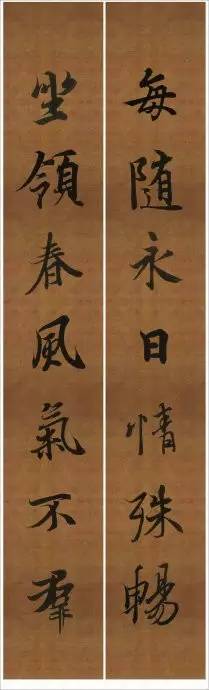 每隨永日情殊暢
坐領春風氣不羣